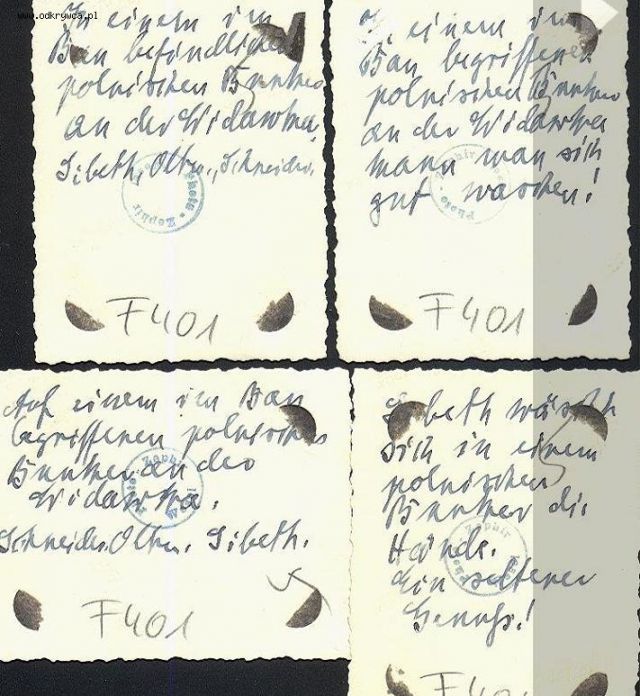 www.odkrywca.pl
In einem im
Bau befindlichen
polnischen Bunker
an der Widawka.
Sibeth, Olten, Schneider.
Photo - Zephir
F401
In einem im
Bau begriffenen
polnischen Bunker
an der Widawka
kann man sich
gut waschen!
Photo - Zephir
F401
Auf einem im Bau
begriffenen polnischen
Bunker an der
Widawka.
Schneider, Olten, Sibeth.
Photo - Zephir
F401
Sibeth wäscht
sich in einem
polnischen
Bunker die
Hände.
Ein seltener
Genuss!
Photo - Zephir
F401